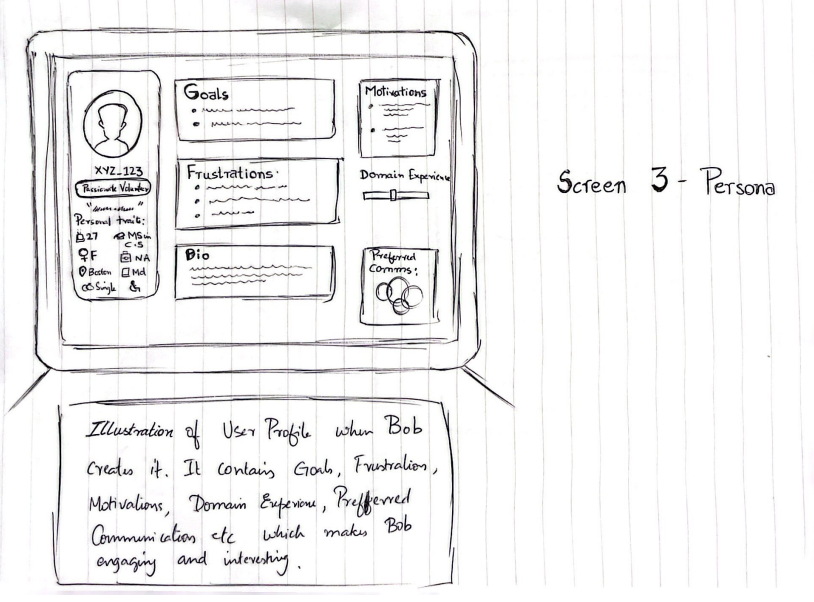 XYZ_123
Passionate Volunteer
Personal traits:
27
MS in
C.S
F
NA
Boston
Md
Single
Goals
Frustrations
Bio
Motivations
Domain Experience
Preferred
Comms:
Screen 3 - Persona
Illustration of User Profile when Bob
creates it. It contains Goals, Frustration,
Motivations, Domain Experience, Prefferred
Communication etc which makes Bob
engaging and interesting.